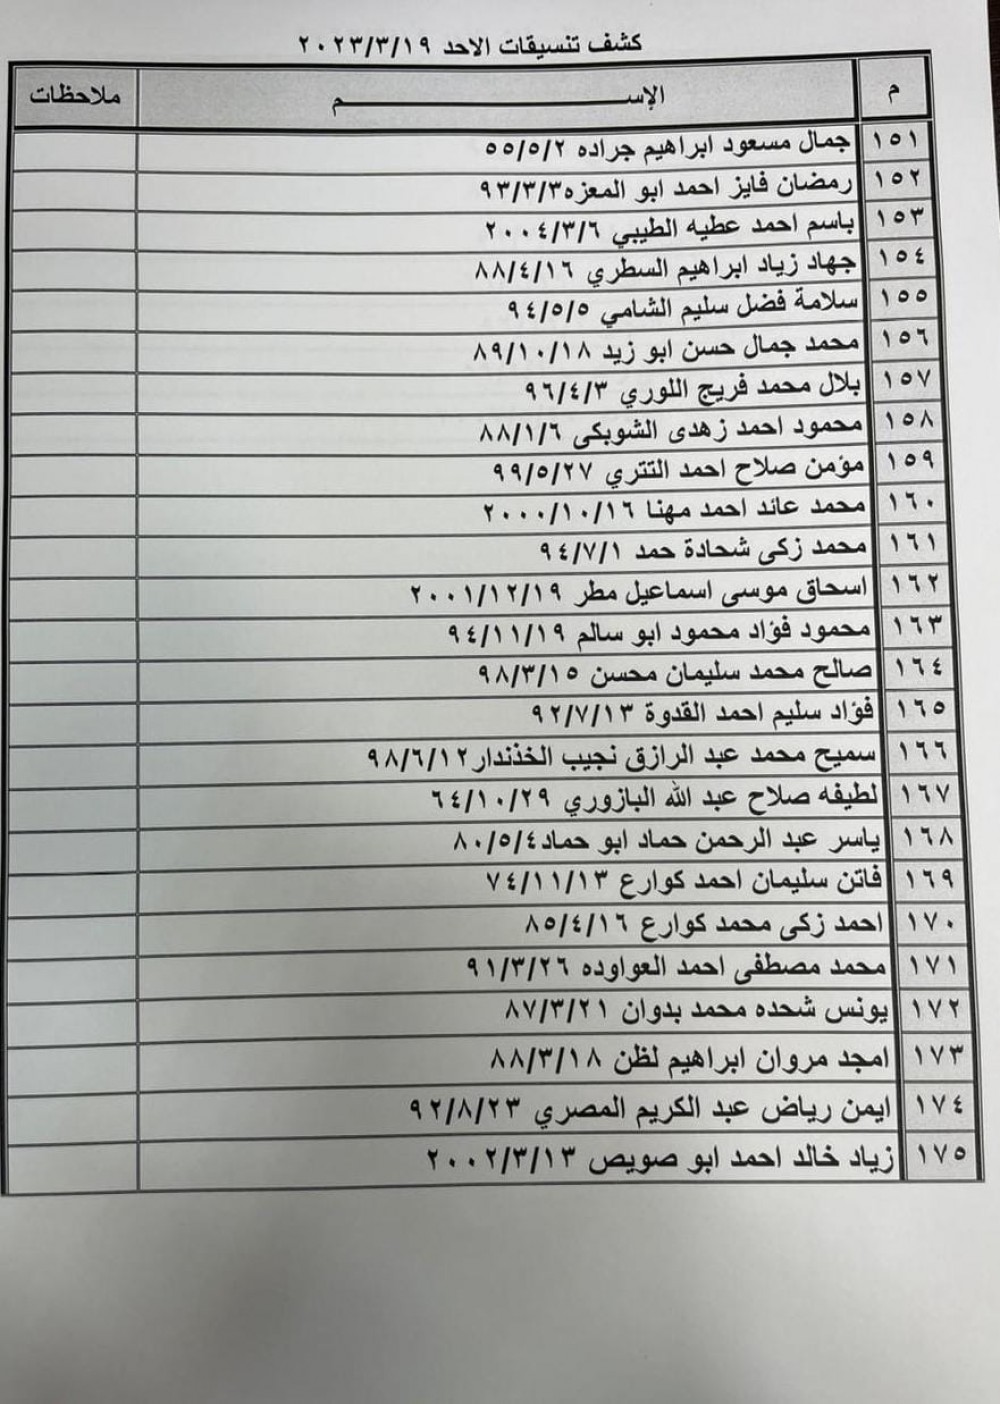 كشف تنسيقات الاحد ٢٠٢٣/٣/١٩
م الإســـــــــــــم ملاحظات
١٥١ جمال مسعود ابراهيم جراده ٥٥/٥/٢
١٥٢ رمضان فايز احمد ابو المعزه٩٣/٣/٣
١٥٣ باسم احمد عطيه الطيبي ٢٠٠٤/٣/٦
١٥٤ جهاد زياد ابراهيم السطري ٨٨/٤/١٦
١٥٥ سلامة فضل سليم الشامي ٩٤/٥/٥
١٥٦ محمد جمال حسن ابو زيد ٨٩/١٠/١٨
١٥٧ بلال محمد فريج اللوري ٩٦/٤/٣
١٥٨ محمود احمد زهدى الشوبكى ٨٨/١/٦
١٥٩ مؤمن صلاح احمد التتري ٩٩/٥/٢٧
١٦٠ محمد عائد احمد مهنا ٢٠٠٠/١٠/١٦
١٦١ محمد زكى شحادة حمد ٩٤/٧/١
١٦٢ اسحاق موسى اسماعيل مطر ٢٠٠١/١٢/١٩
١٦٣ محمود فؤاد محمود ابو سالم ٩٤/١١/١٩
١٦٤ صالح محمد سليمان محسن ٩٨/٣/١٥
١٦٥ فؤاد سليم احمد القدوة ٩٢/٧/١٣
١٦٦ سميح محمد عبد الرازق نجيب الخذندار٩٨/٦/١٢
١٦٧ لطيفه صلاح عبد الله البازوري ٦٤/١٠/٢٩
١٦٨ ياسر عبد الرحمن حماد ابو حماد٨٠/٥/٤
١٦٩ فاتن سليمان احمد كوارع ٧٤/١١/١٣
١٧٠ احمد زكى محمد كوارع ٨٥/٤/١٦
١٧١ محمد مصطفى احمد العواوده ٩١/٣/٢٦
١٧٢ يونس شحده محمد بدوان ٨٧/٣/٢١
١٧٣ امجد مروان ابراهيم لظن ٨٨/٣/١٨
١٧٤ ايمن رياض عبد الكريم المصري ٩٢/٨/٢٣
١٧٥ زياد خالد احمد ابو صويص ٢٠٠٢/٣/١٣